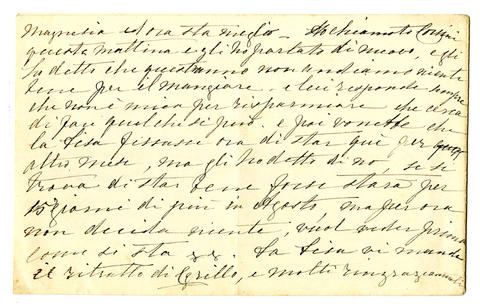 magnesia e ora sta meglio - Ho chiamato Corsini
questa mattina e gli ho parlato di nuovo, e gli
ho detto che quest'anno non andiamo niente
bene per il mangiare. e lui risponde sempre
che non è mica per risparmiare che cerca
di fare quel che si può. e poi vorrebbe che
la Lisa fissasse ora di star qui per
altro mese, ma gli ho detto di no, se si
trova di star bene forse starà per
15 giorni di più in Agosto, ma per ora
non decida niente, vuol veder prima
come si sta. La Lisa vi manda
il ritratto di Cirillo, e molti ringraziamenti